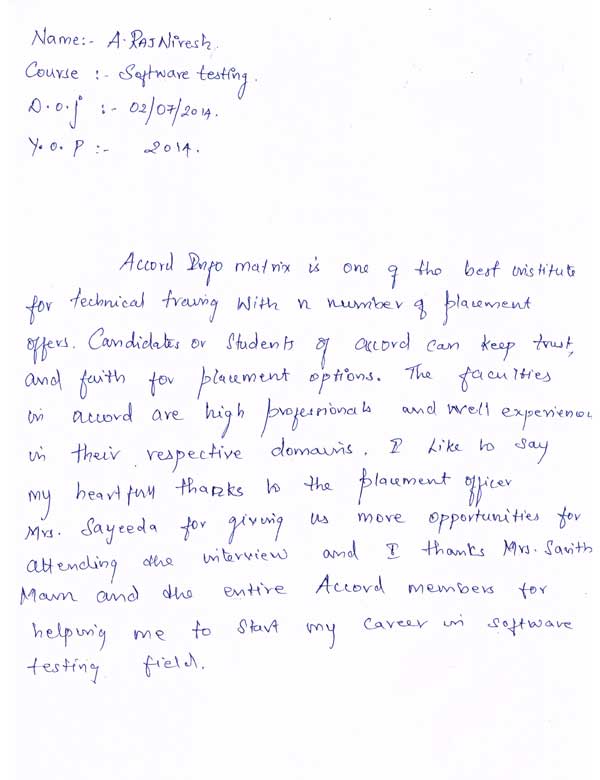 Name:- A. RAJNiresh.
Course :- Software testing.
D.o.j :- 02/07/2014.
Y.o.P :- 2014.
Accord Info matrix is one of the best institute
for technical traing With n number of placement
offers. Candidates or Students of accord can keep trust,
and faith for placement options. The faculties
in accord are high professionals and well experience
in their respective domains. I Like to say
my heartfull thanks to the placement officer
Mrs. Sayeeda for giving us more opportunities for
attending the interview and I thanks Mrs. Savith
Mam and the entire Accord members for
helping me to Start my career in software
testing field.